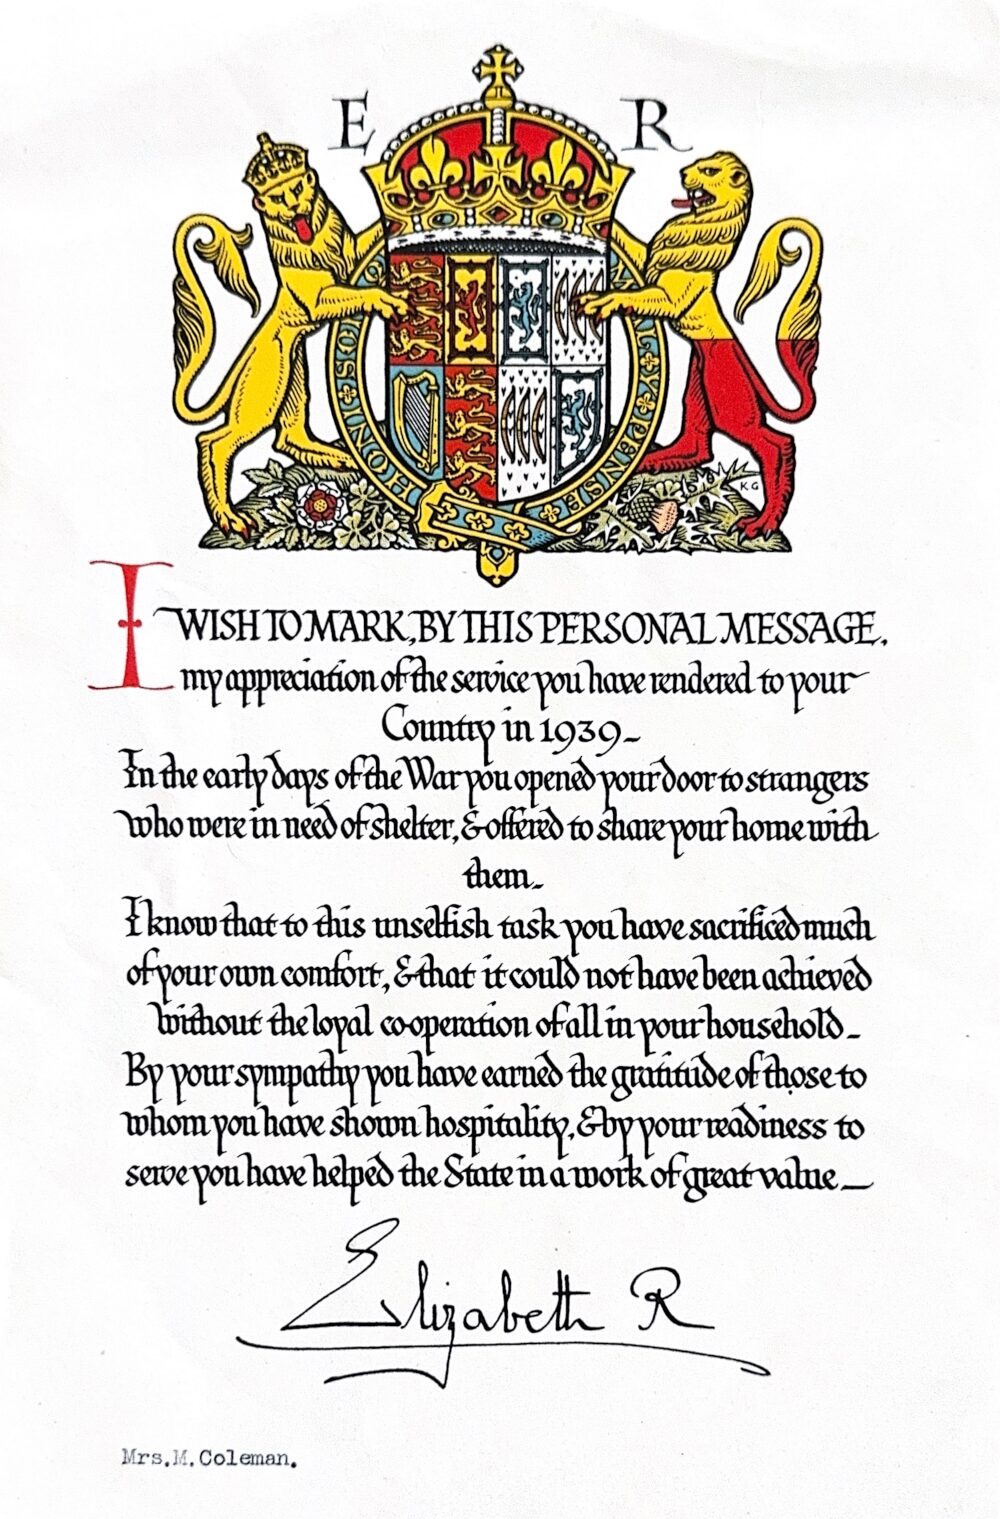 E R
HONI·SOI
Y·PENSE
K G
I WISH TO MARK, BY THIS PERSONAL MESSAGE,
my appreciation of the service you have rendered to your
Country in 1939–
In the early days of the War you opened your door to strangers
who were in need of shelter, & offered to share your home with
them–
I know that to this unselfish task you have sacrificed much
of your own comfort, & that it could not have been achieved
without the loyal co-operation of all in your household–
By your sympathy you have earned the gratitude of those to
whom you have shown hospitality, & by your readiness to
serve you have helped the State in a work of great value—
Elizabeth R
Mrs.M.Coleman.